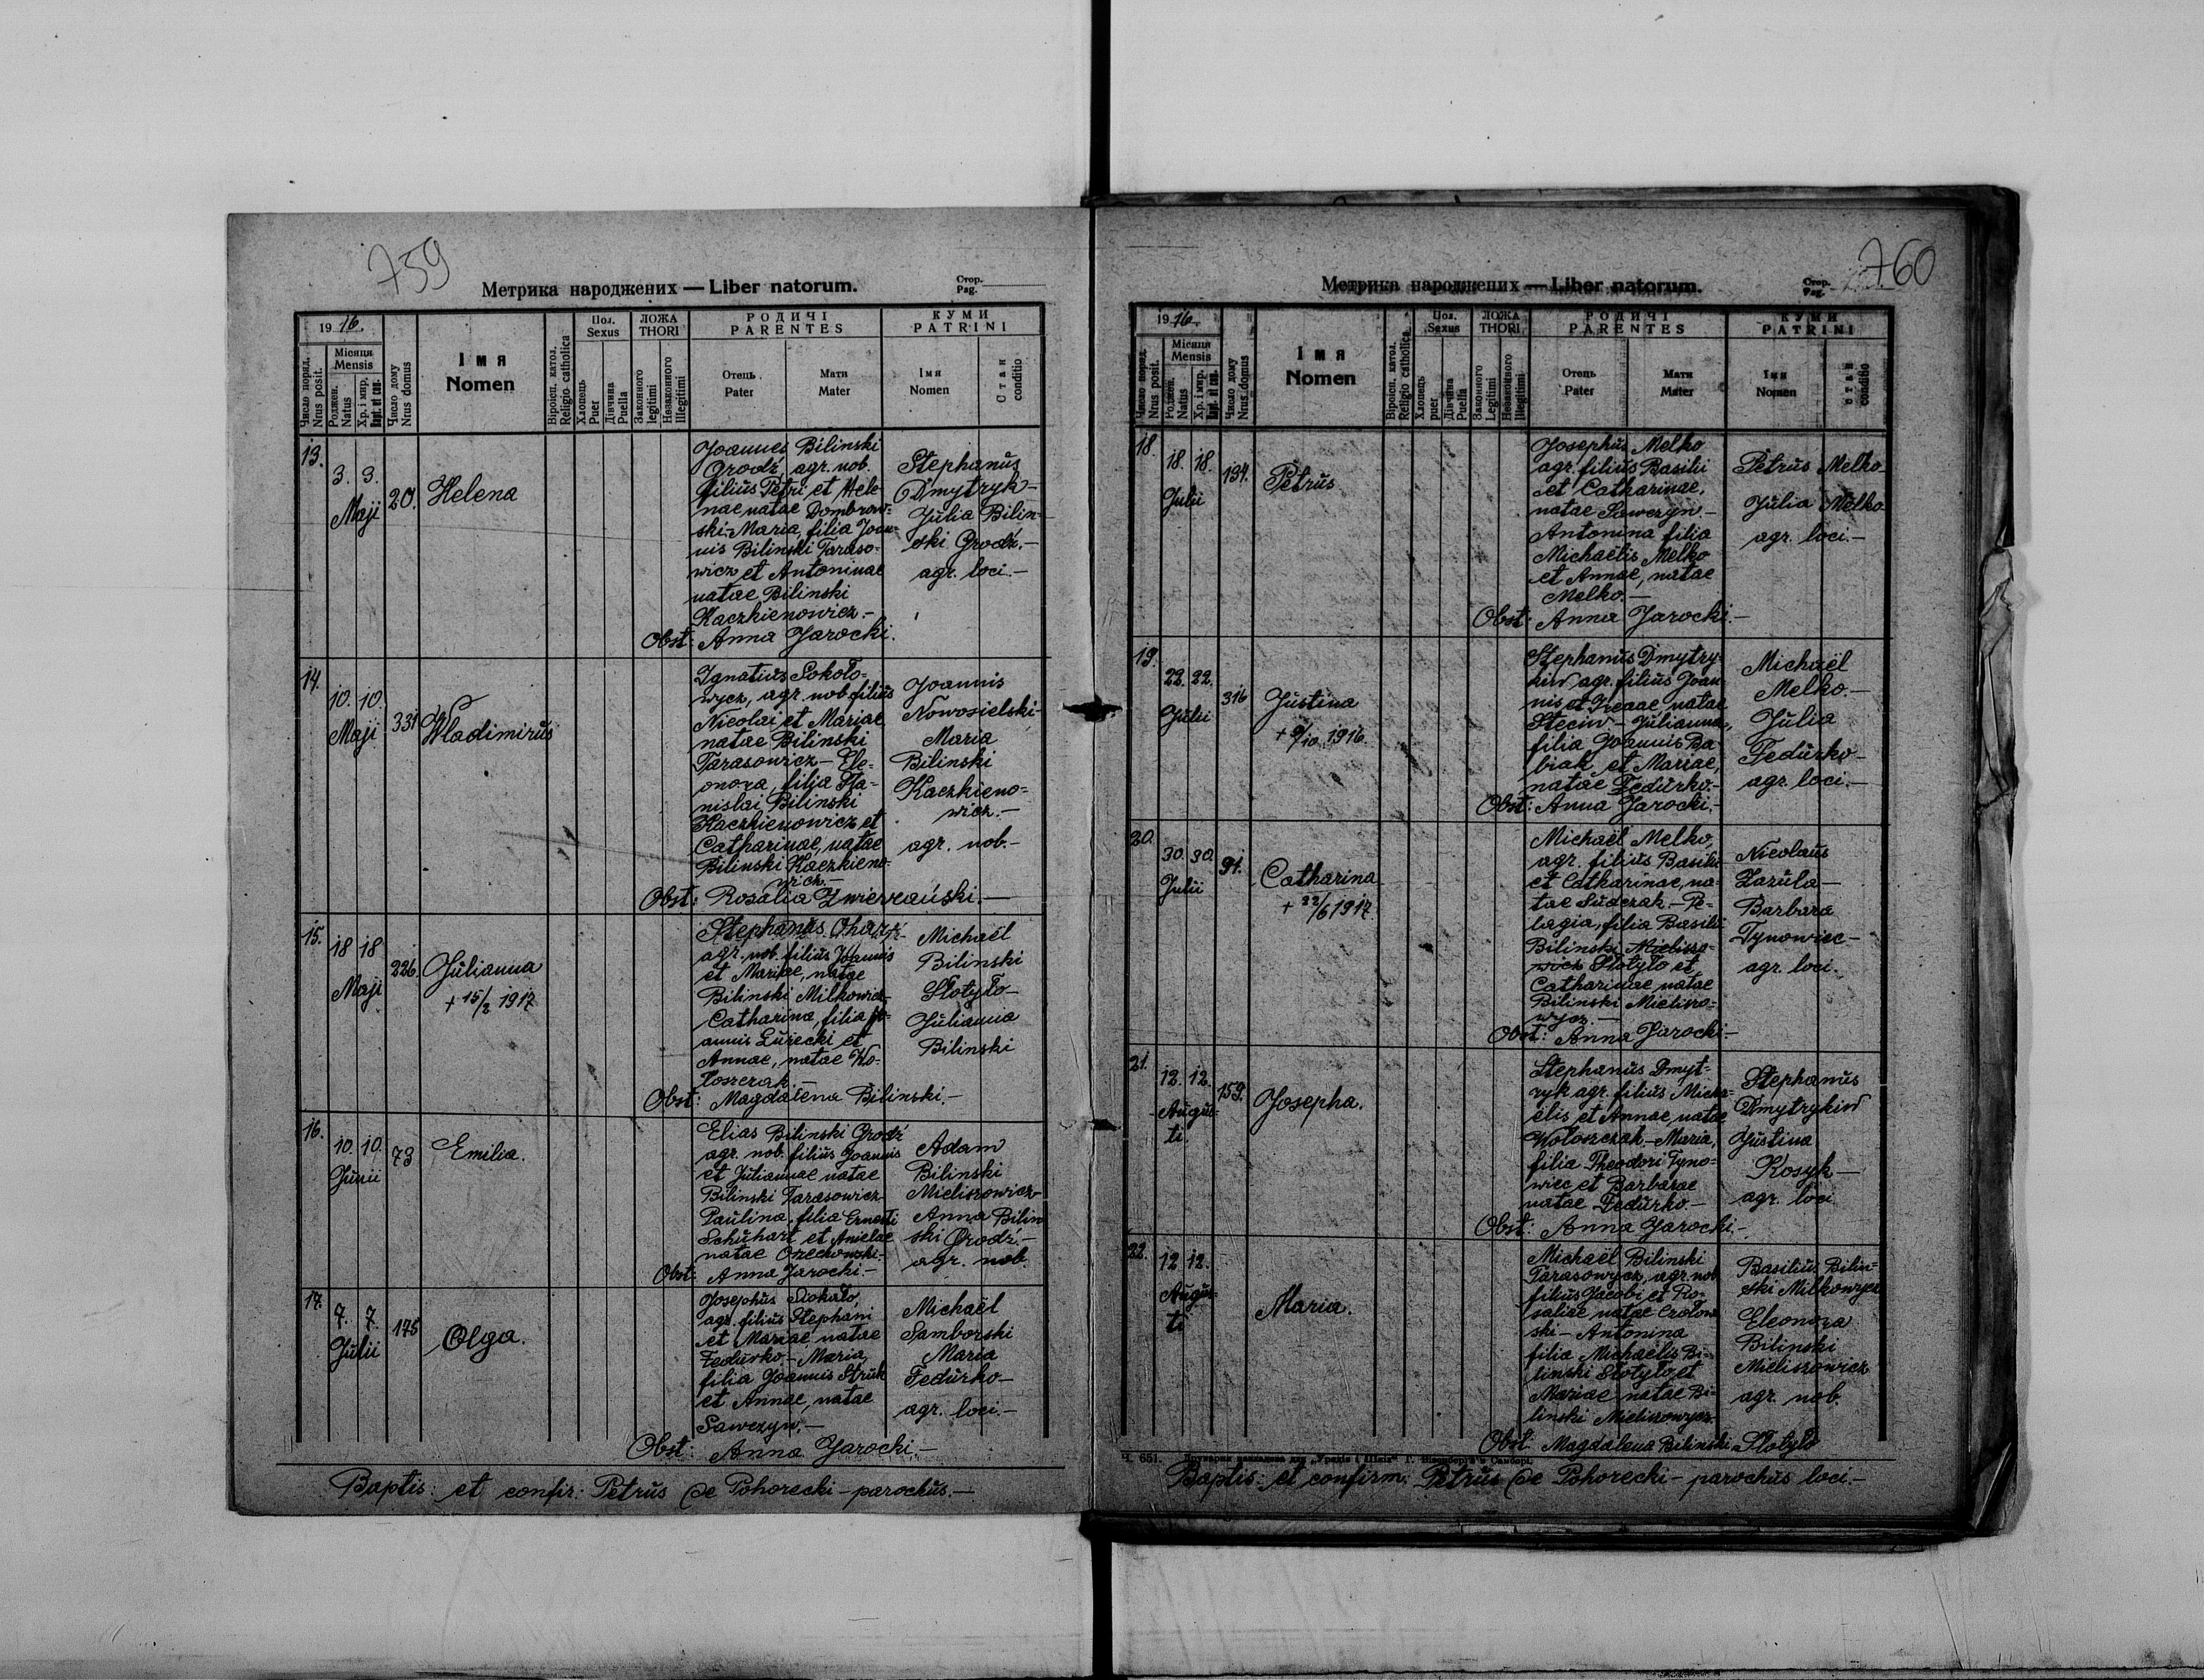 759
Метрика народжених — Liber natorum.
Стор.
Pag.
1916.
Число поряд.
Nrus posit.
Місяця
Mensis
Роджен.
Natus
Хр. і мир.
Bapt. et con.
Число дому
Nrus domus
Імя
Nomen
Віроісп. катол.
Religio catholica
Пол.
Sexus
Хлопець
Puer
Дівчина
Puella
ЛОЖА
THORI
Законного
legitimi
Незаконного
Illegitimi
РОДИЧІ
PARENTES
Отець
Pater
Мати
Mater
КУМИ
PATRINI
Імя
Nomen
Стан
conditio
13.
3. 3.
Maji
20.
Helena
Joannes Bilinski
Grodź, agr. nob.
filius Petri et Hele-
nae natae Dombrow-
ski - Maria, filia Joan-
nis Bilinski Taraso-
wicz et Antoninae
natae Bilinski
Kaczkienowicz.-
Stephanus
Dmytryk-
Julia Bilin-
ski Grodź.-
agr. loci.-
Obst: Anna Jarocki.
14.
10. 10.
Maji
331
Wladimirus
Ignatius Sokoło-
wycz, agr. nob. filius
Nicolai et Mariae
natae Bilinski
Tarasowicz - Ele-
onora, filia Sta-
nislai Bilinski
Kaczkienowicz et
Catharinae, natae
Bilinski Kaczkieno-
wicz.-
Joannis
Nowosielski-
Maria
Bilinski
Kaczkieno-
wicz.-
agr. nob.-
Obst: Rosalia
15.
18 18
Maji
226.
Julianna
+ 15/2 1917
Stephanus
agr. nob. filius Joannis
et Mariae, natae
Bilinski Milkowicz-
Catharina, filia Jo-
annis Łużecki et
Annae, natae Wo-
łoszczak.-
Michaël
Bilinski
Słotyło-
Julianna
Bilinski
Obst: Magdalena Bilinski.-
16.
10. 10.
Junii
73
Emilia.
Elias Bilinski Grodź
agr. nob. filius Joannis
et Juliannae natae
Bilinski Tarasowicz-
Paulina, filia Ernesti
Schuhart et Anielae
natae Orzechowski-
Adam
Bilinski
Mieliszowicz-
Anna Bilin
ski Grodź.-
agr. nob.
Obst: Anna Jarocki.-
17.
7. 7.
Julii
175
Olga.
Josephus Siokało,
agr. filius Stephani
et Mariae, natae
Fedurko.- Maria,
filia Joannis Struk
et Annae, natae
Sawczyn.-
Michaël
Samborski
Maria
Fedurko-
agr. loci.-
Obst: Anna Jarocki.-
Baptis: et confir: Petrus de Pohorecki - parochus.-
760
Метрика народжених — Liber natorum.
Стор.
Pag.
1916.
Число поряд.
Nrus posit.
Місяця
Mensis
Роджен.
Natus
Хр. і мир.
Bapt. et con.
Число дому
Nrus domus
Імя
Nomen
Віроісп. катол.
Religio catholica
Пол.
Sexus
Хлопець
puer
Дівчина
Puella
ЛОЖА
THORI
Законного
Legitimi
Незаконного
Illegitimi
РОДИЧІ
PARENTES
Отець
Pater
Мати
Mater
КУМИ
PATRINI
Імя
Nomen
Стан
conditio
18.
18. 18.
Julii
134.
Petrus
Josephus Melko
agr. filius Basilii
et Catharinae,
natae Sawczyn-
Antonina filia
Michaëlis Melko
et Annae, natae
Melko.-
Petrus Melko
Julia Melko
agr. loci.-
Obst: Anna Jarocki.-
19.
22. 22.
Julii
316
Justina
1916.
Stephanus Dmytry-
kiw agr. filius Joan-
nis et Irenae, natae
Steciw - Julianna,
filia Joannis Ba
biak et Mariae,
natae Fedurko.-
Michaël
Melko.-
Julia
Fedurko-
agr. loci.-
Obst: Anna Jarocki.-
20.
30. 30.
Julii
91.
Catharina
+ 22/6 1917.
Michaël Melko,
agr. filius Basilii
et Catharinae, na-
tae Suderak.- Pe-
lagia, filia Basilii
Bilinski Mieliszo-
wicz Słotyło et
Catharinae natae
Bilinski Mieliszo-
wycz.-
Nicolaus
Zazula-
Barbara
Tynowiec-
agr. loci.
Obst: Anna Jarocki-
21.
12. 12.
Augus-
ti.
159.
Josepha.
Stephanus Dmyt-
ryk agr. filius Micha-
ëlis et Annae, natae
Wołoszczak - Maria,
filia Theodori Tyno-
wiec et Barbarae
natae Fedurko.-
Stephanus
Dmytrykiw
Justina
Kosyk-
agr. loci
Obst: Anna Jarocki.-
22.
12 12.
Augus-
ti
Maria.
Michaël Bilinski
Tarasowycz, agr. nob
filius Jacobi et Ro-
saliae natae
ski - Antonina
filia Michaëlis Bi-
linski Słotyło et
Mariae natae Bi-
linski Mieliszowycz-
Basilius Bilin-
ski Milkowycz
Eleonora
Bilinski
Mieliszowicz
agr. nob.
Obst: Magdalena Bilinski - Słotyło
Ч. 651.
Baptis: et confirm: Petrus de Pohorecki - parochus loci.-